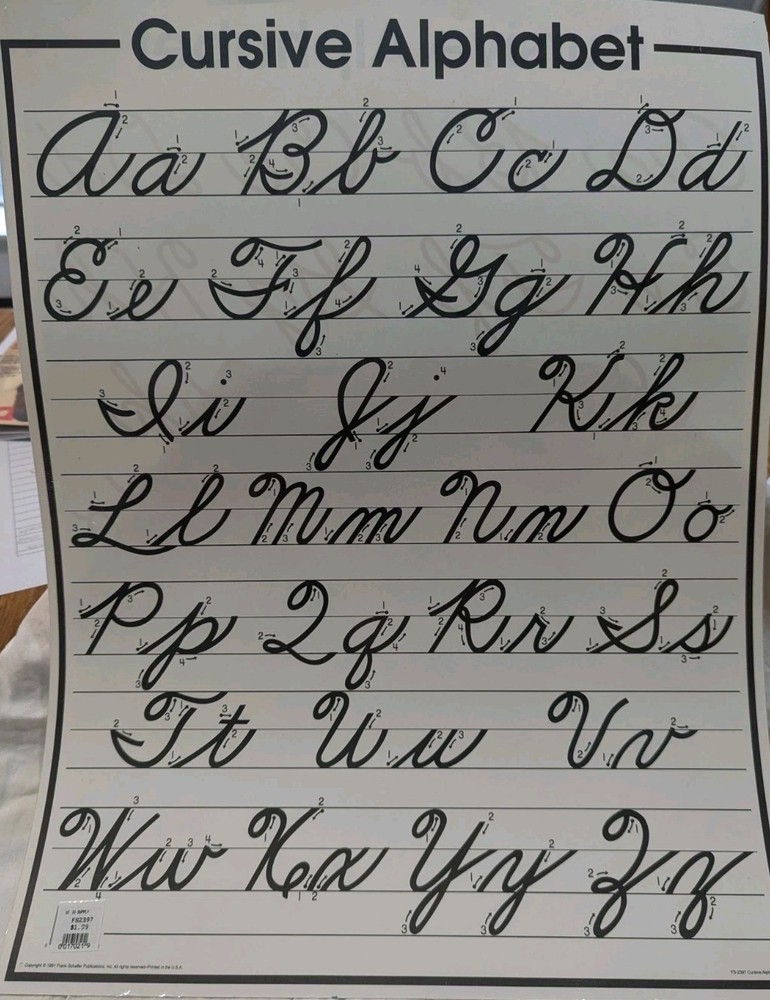 Cursive Alphabet
Aa Bb Cc Dd
Ee Ff Gg Hh
Ii Jj Kk
Ll Mm Nn Oo
Pp Qq Rr Ss
Tt Uu Vv
Ww Xx Yy Zz
FS2397
$1.99
Copyright © 1991 Frank Schaffer Publications, Inc. All rights reserved—Printed in the U.S.A.